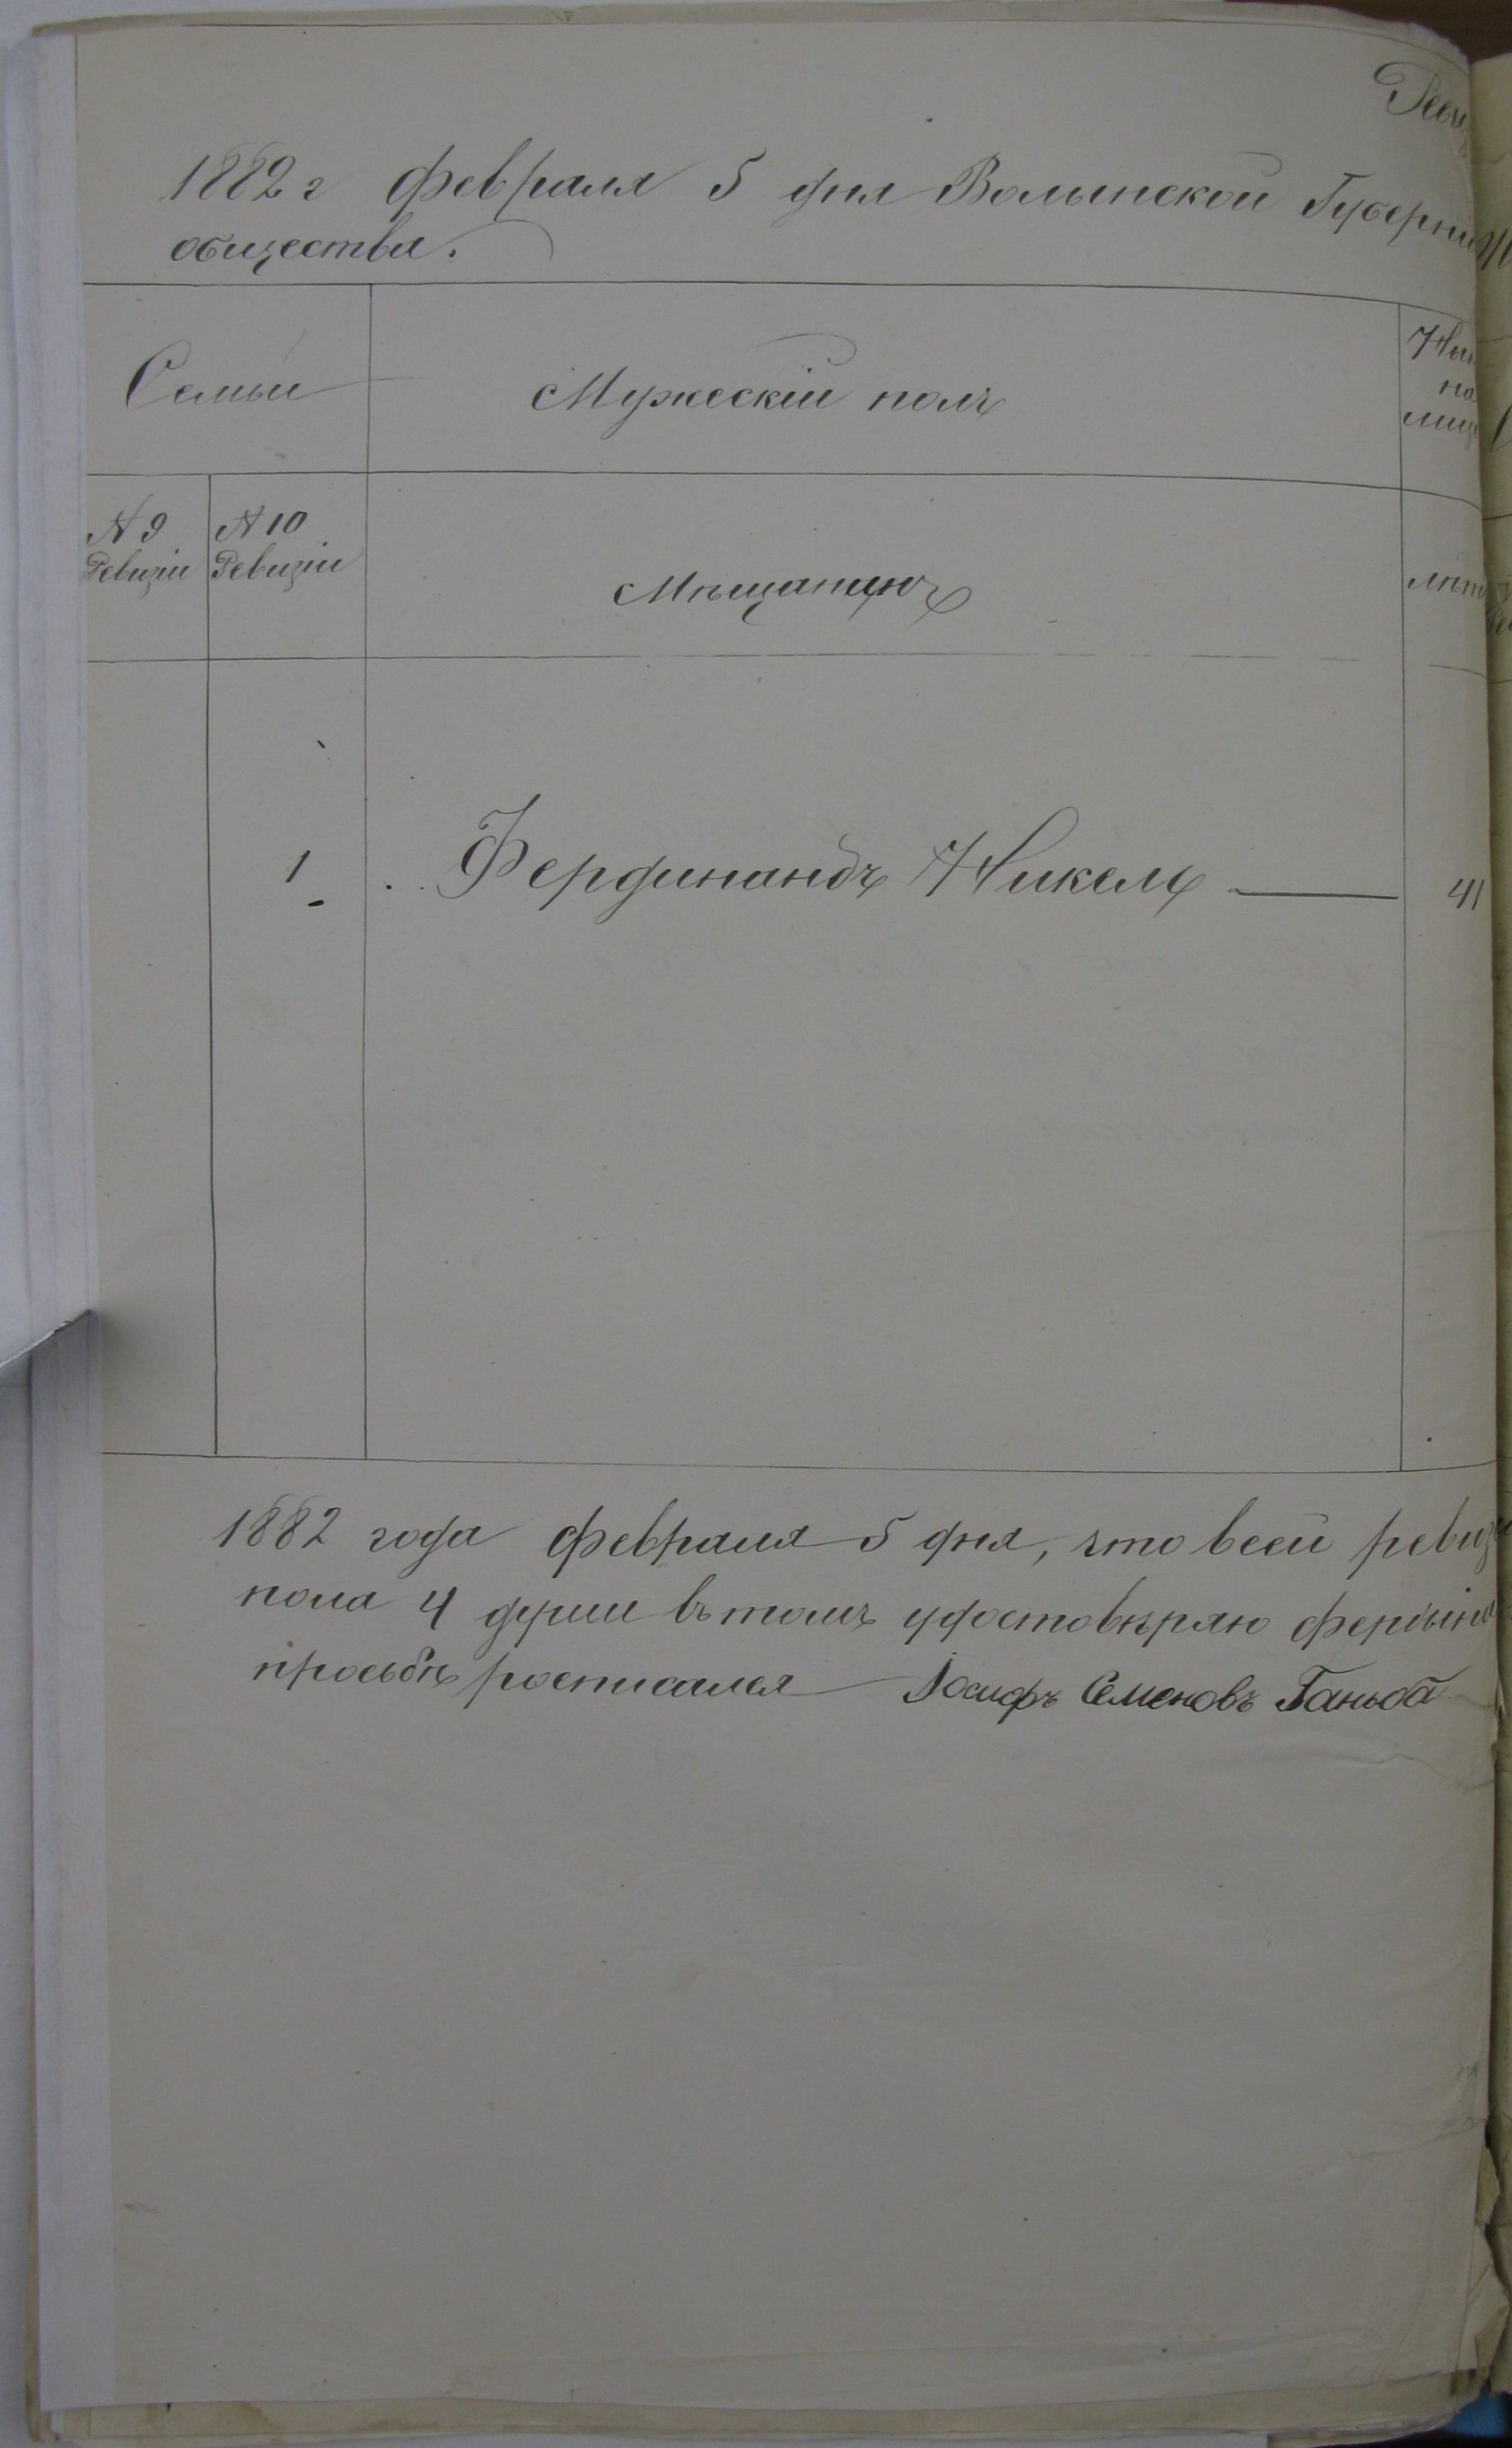 1882 г Февраля 5 дня Волынской Губерни
общества.
Семьи
Мужескій полъ
Нын
по
лиц
№ 9
Ревизіи
№ 10
Ревизіи
Мѣщанинъ
лѣт
1
Фердинандъ Никель
41
1882 года Февраля 5 дня, что всей ревиз
пола 4 души въ томъ удостовѣряю Ферди
просьбѣ росписался Іосифъ Семеновъ